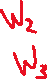 W₂
W₃